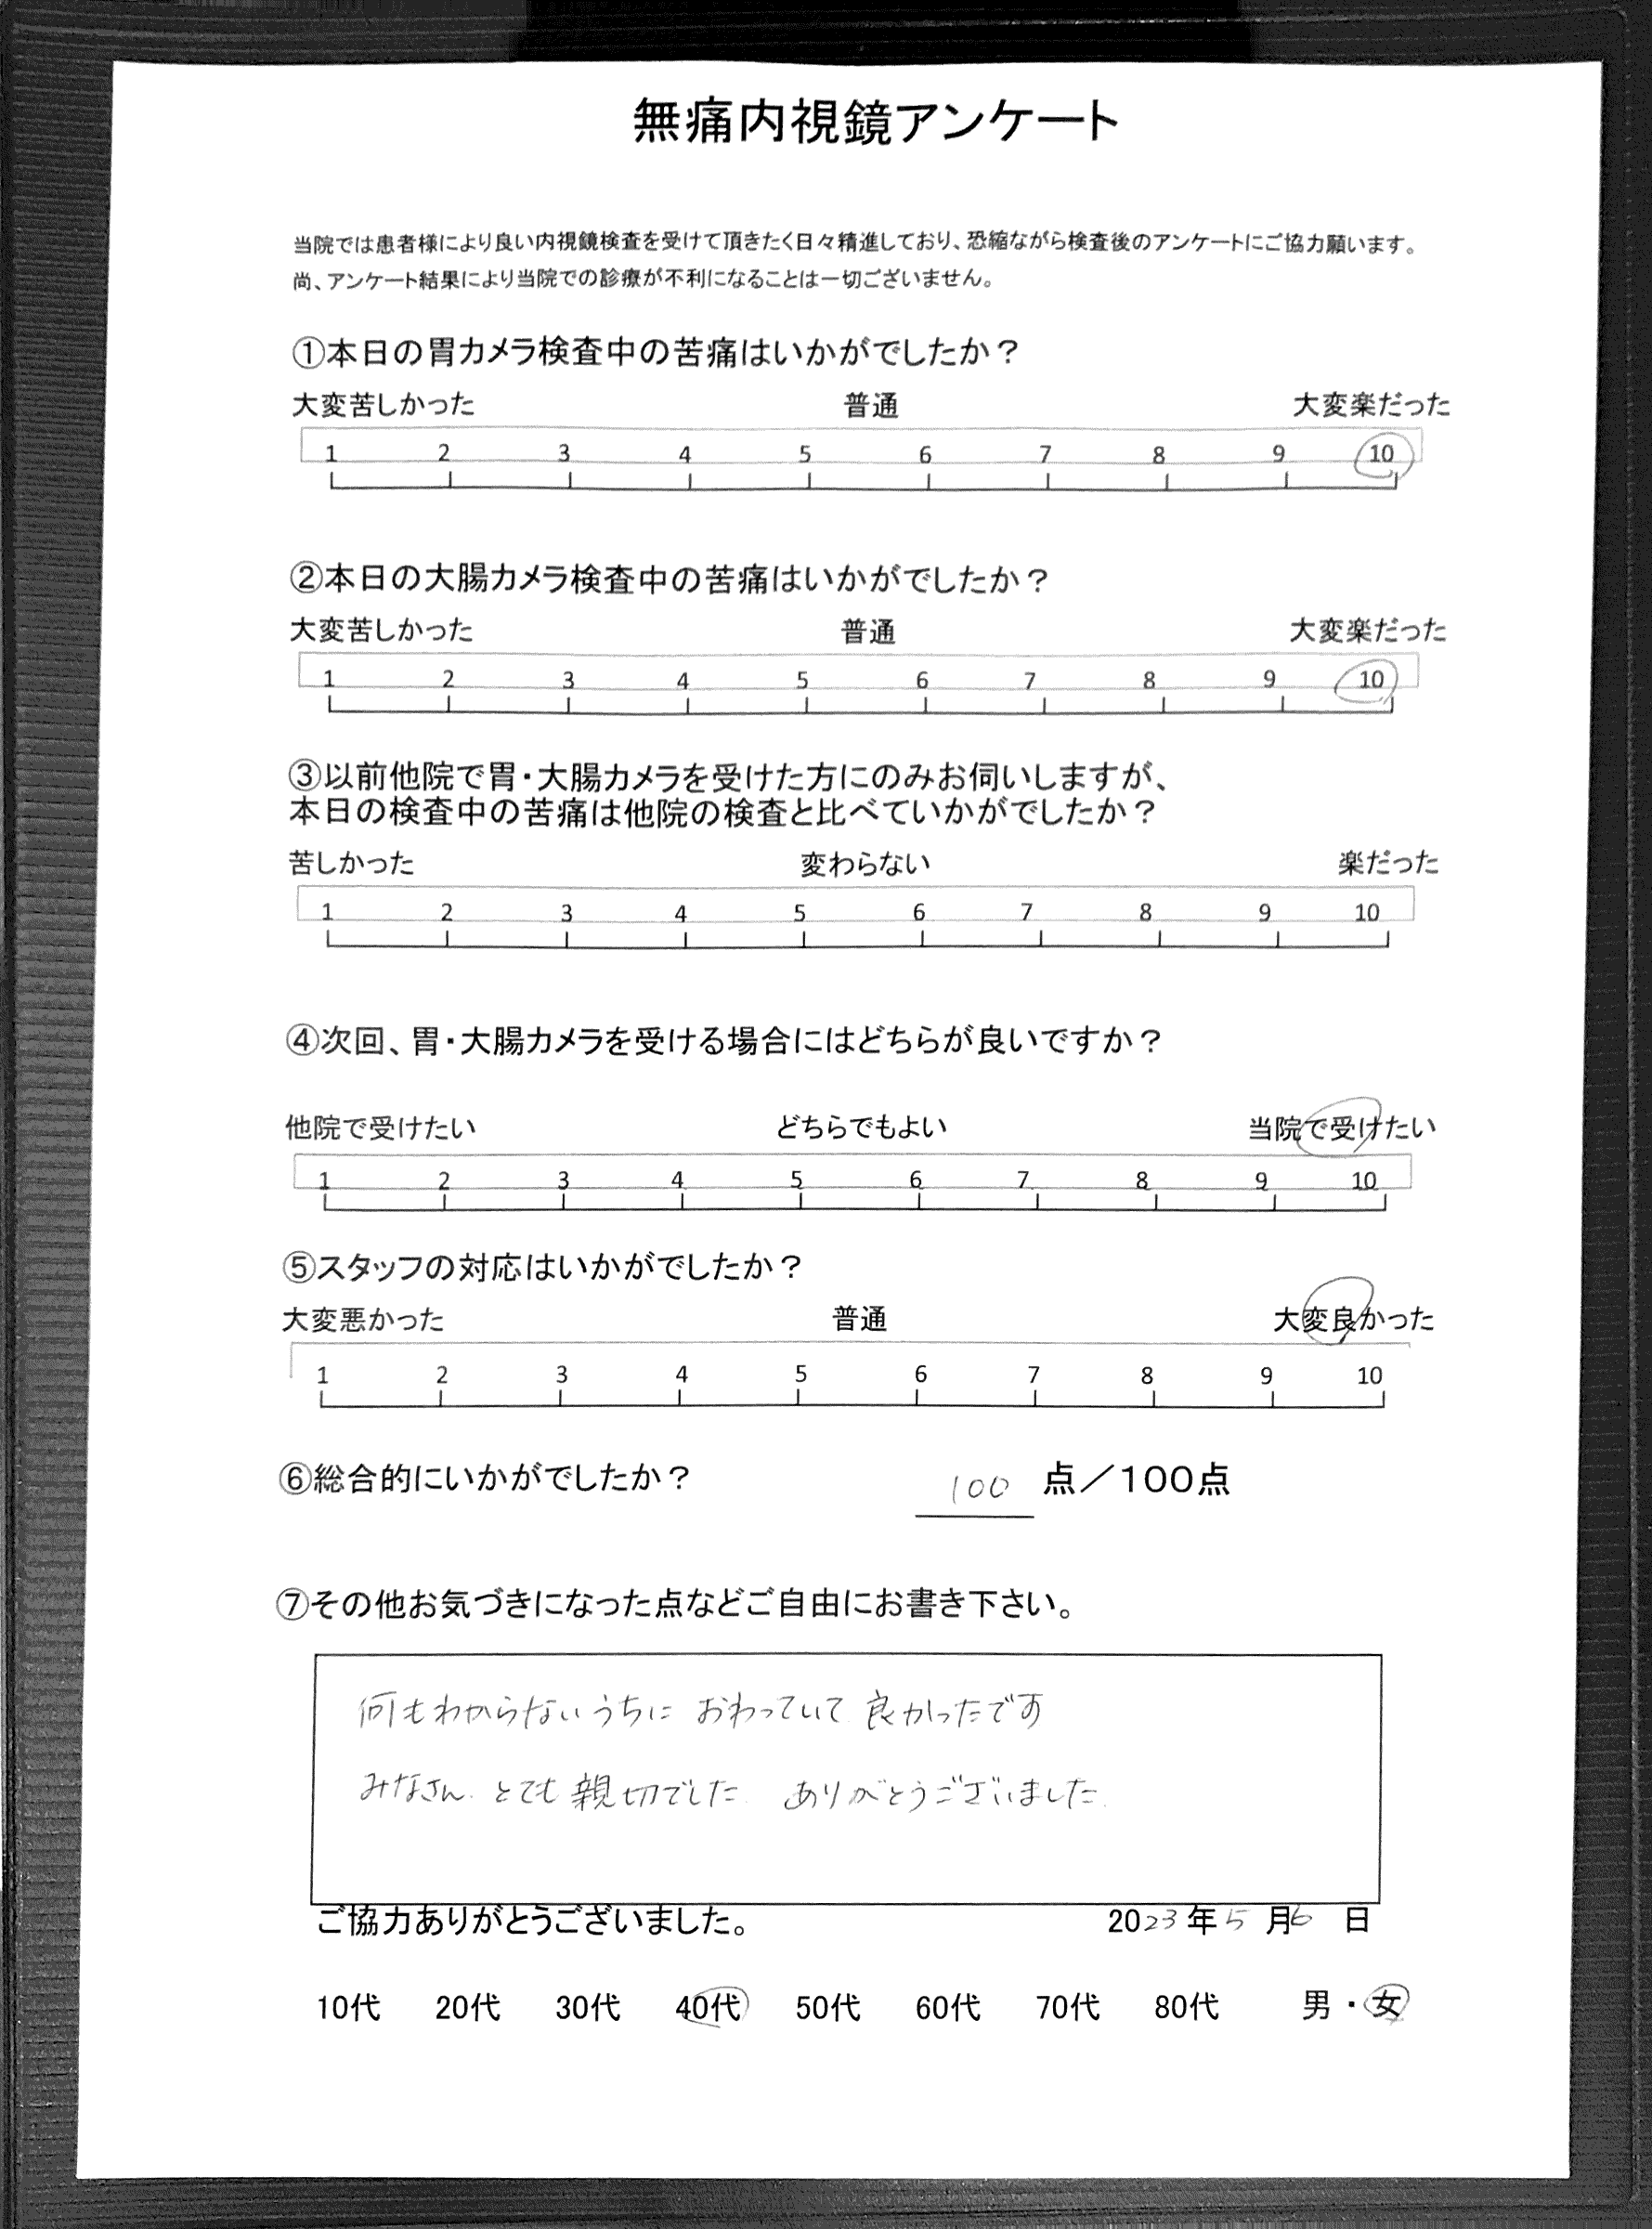 無痛内視鏡アンケート
当院では患者様により良い内視鏡検査を受けて頂きたく日々精進しており、恐縮ながら検査後のアンケートにご協力願います。
尚、アンケート結果により当院での診療が不利になることは一切ございません。
①本日の胃カメラ検査中の苦痛はいかがでしたか？
大変苦しかった 普通 大変楽だった
1 2 3 4 5 6 7 8 9 10
②本日の大腸カメラ検査中の苦痛はいかがでしたか？
大変苦しかった 普通 大変楽だった
1 2 3 4 5 6 7 8 9 10
③以前他院で胃・大腸カメラを受けた方にのみお伺いしますが、
本日の検査中の苦痛は他院の検査と比べていかがでしたか？
苦しかった 変わらない 楽だった
1 2 3 4 5 6 7 8 9 10
④次回、胃・大腸カメラを受ける場合にはどちらが良いですか？
他院で受けたい どちらでもよい 当院で受けたい
1 2 3 4 5 6 7 8 9 10
⑤スタッフの対応はいかがでしたか？
大変悪かった 普通 大変良かった
1 2 3 4 5 6 7 8 9 10
⑥総合的にいかがでしたか？ 100 点／100点
⑦その他お気づきになった点などご自由にお書き下さい。
何もわからないうちに おわっていて 良かったです
みなさん とても 親切でした ありがとうございました.
ご協力ありがとうございました。 2023年5月6日
10代 20代 30代 40代 50代 60代 70代 80代 男・女